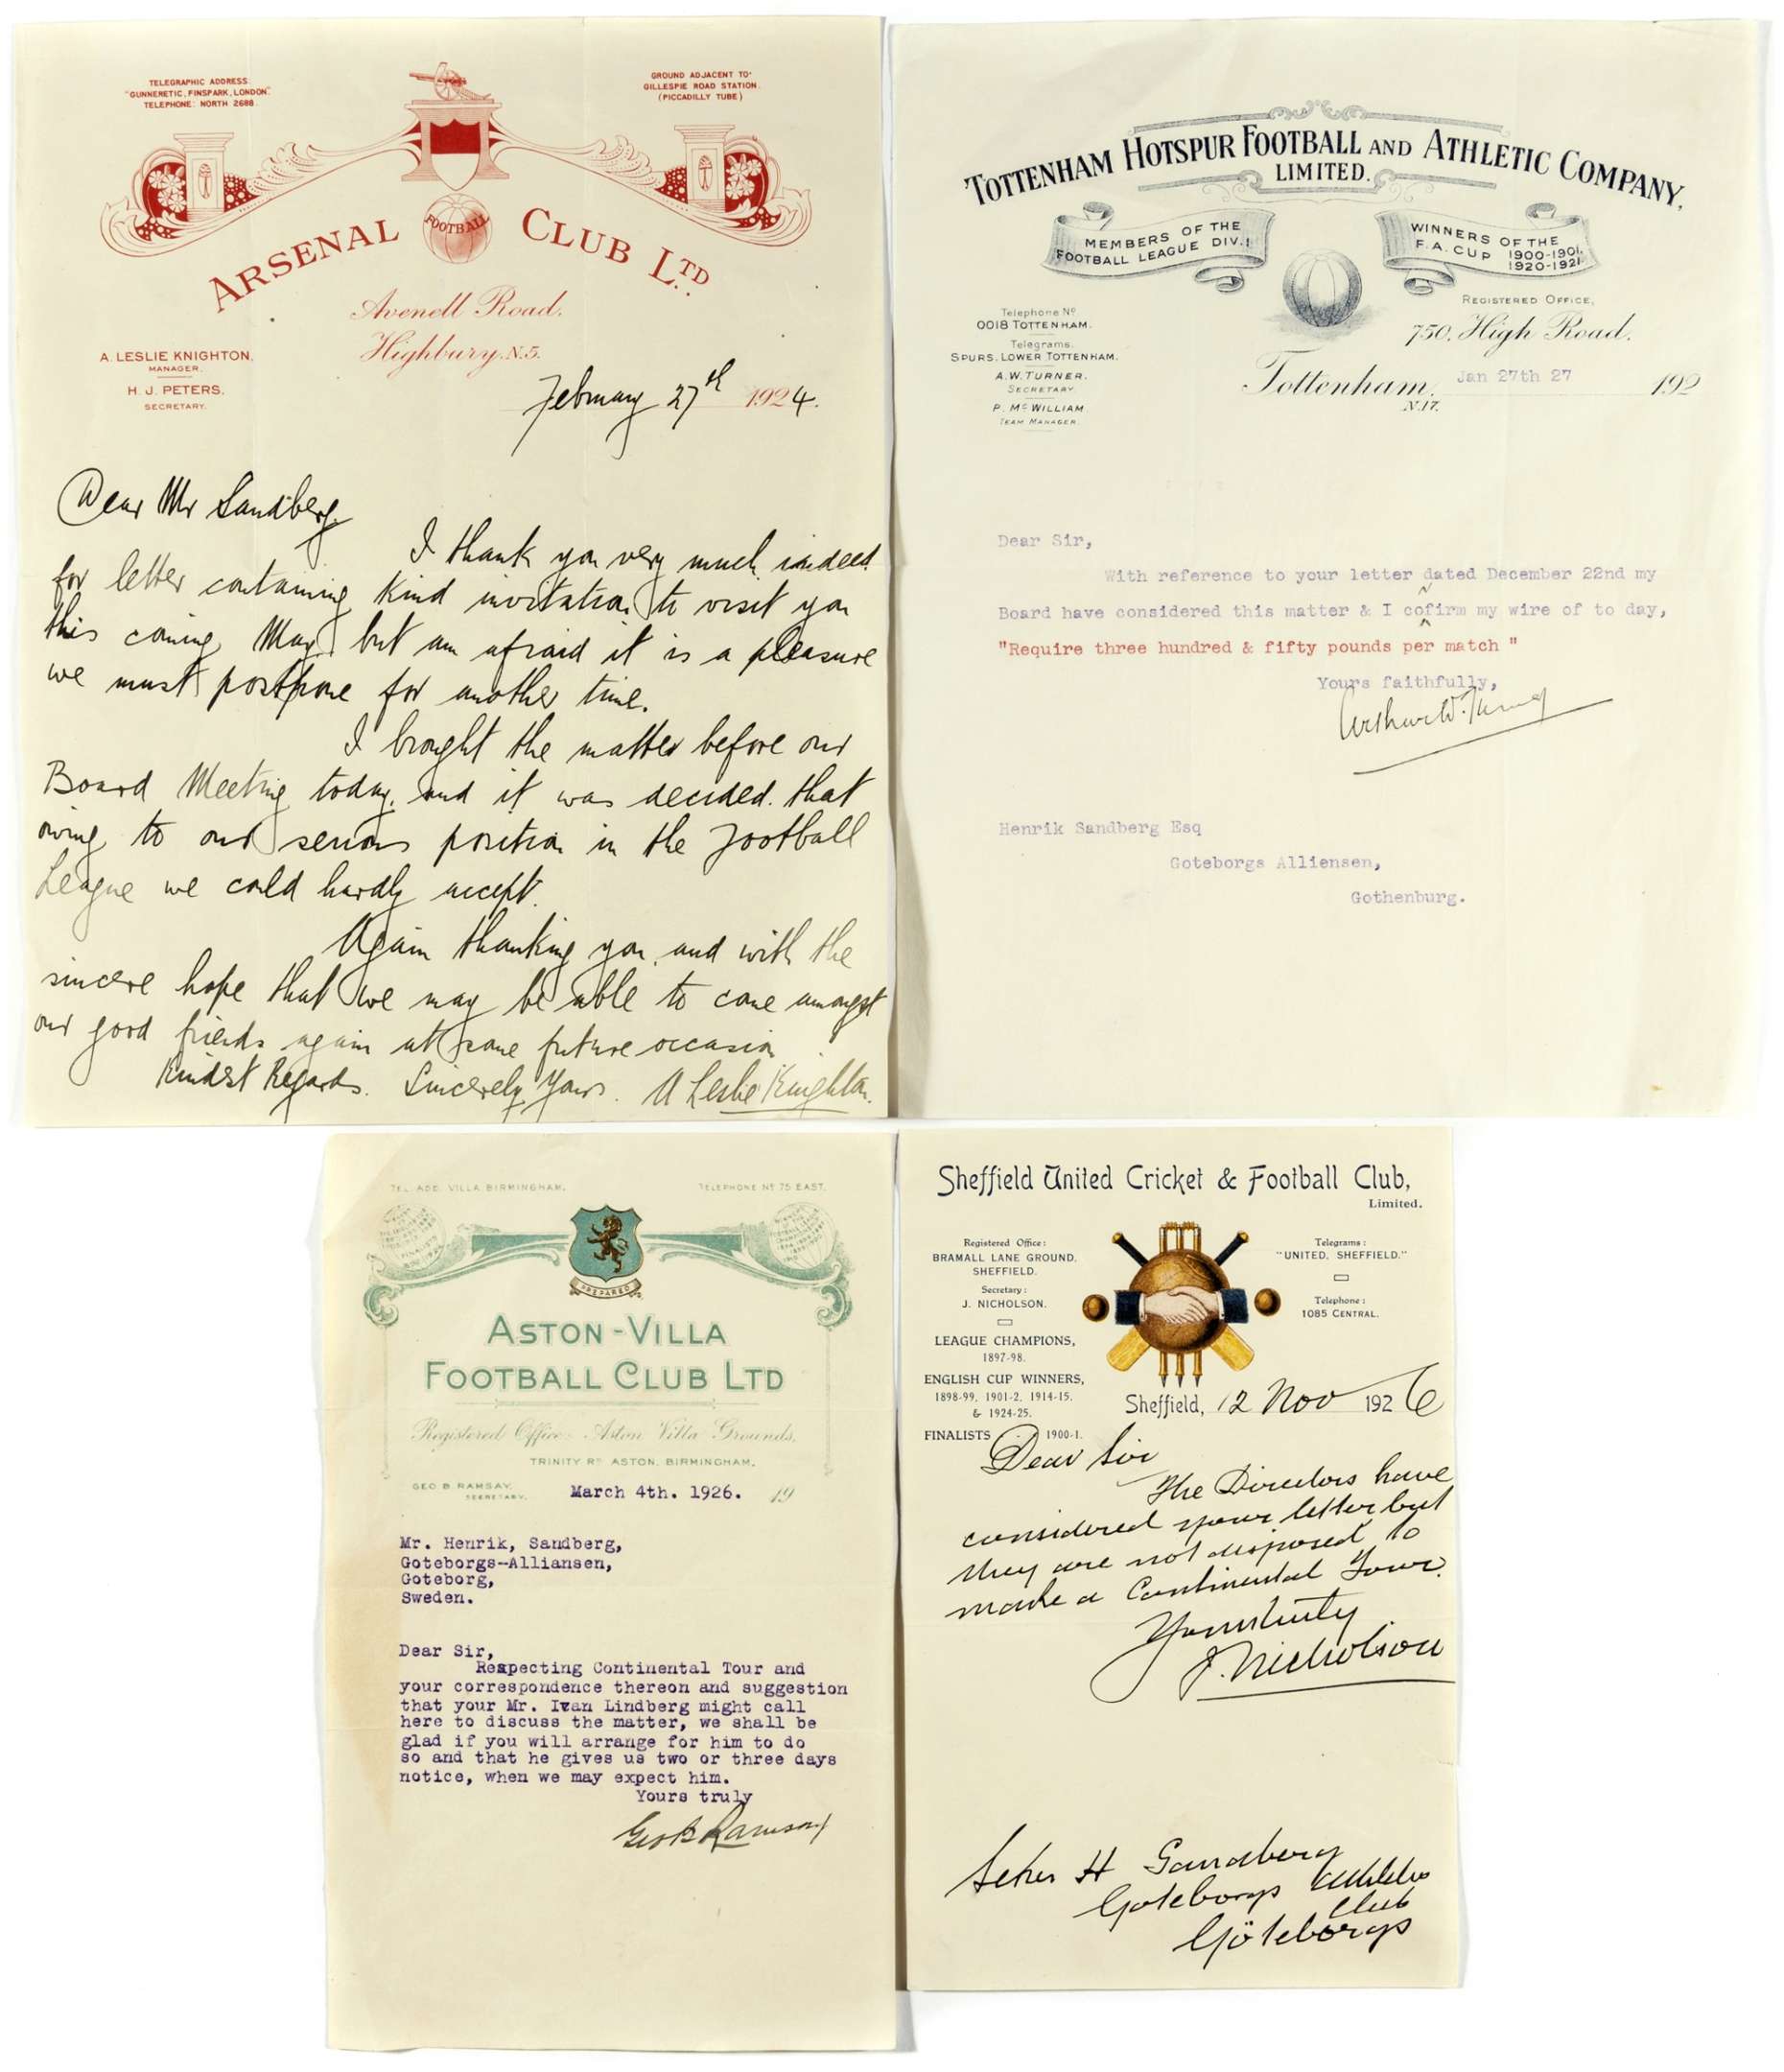 TELEGRAPHIC ADDRESS:
"GUNNERETIC, FINSPARK, LONDON."
TELEPHONE: NORTH 2688.
GROUND ADJACENT TO
GILLESPIE ROAD STATION.
(PICCADILLY TUBE)
ARSENAL FOOTBALL CLUB LTD.
Avenell Road,
Highbury. N.5.
A. LESLIE KNIGHTON,
MANAGER.
H. J. PETERS,
SECRETARY.
February 27th 1924.
Dear Mr Sandberg.
I thank you very much indeed
for letter containing kind invitation to visit you
this coming May, but am afraid it is a pleasure
we must postpone for another time.
I brought the matter before our
Board Meeting today, and it was decided that
owing to our serious position in the Football
League we could hardly accept.
Again thanking you, and with the
sincere hope that we may be able to come amongst
our good friends again at some future occasion
Kindest Regards. Sincerely Yours. A Leslie Knighton.
TOTTENHAM HOTSPUR FOOTBALL AND ATHLETIC COMPANY,
LIMITED.
MEMBERS OF THE
FOOTBALL LEAGUE DIV. I
WINNERS OF THE
F.A. CUP 1900-1901,
1920-1921
Telephone No
0018 TOTTENHAM.
Telegrams.
SPURS. LOWER TOTTENHAM.
A.W. TURNER.
SECRETARY
P. McWILLIAM
TEAM MANAGER.
REGISTERED OFFICE,
750, High Road,
Tottenham, Jan 27th 27 192
N.17.
Dear Sir,
With reference to your letter dated December 22nd my
Board have considered this matter & I cofirm my wire of to day,
"Require three hundred & fifty pounds per match "
Yours faithfully,
Arthur W. Turner
Henrik Sandberg Esq
Goteborgs Alliensen,
Gothenburg.
TEL. ADD. VILLA BIRMINGHAM.
TELEPHONE No 75 EAST.
PREPARED
ASTON-VILLA
FOOTBALL CLUB LTD
Registered Office: Aston Villa Grounds,
TRINITY RD ASTON, BIRMINGHAM.
GEO B. RAMSAY,
SECRETARY.
March 4th. 1926. 19
Mr. Henrik, Sandberg,
Goteborgs--Alliansen,
Goteborg,
Sweden.
Dear Sir,
Respecting Continental Tour and
your correspondence thereon and suggestion
that your Mr. Ivan Lindberg might call
here to discuss the matter, we shall be
glad if you will arrange for him to do
so and that he gives us two or three days
notice, when we may expect him.
Yours truly
Geo B Ramsay
Sheffield United Cricket & Football Club,
Limited.
Registered Office:
BRAMALL LANE GROUND,
SHEFFIELD.
Secretary:
J. NICHOLSON.
LEAGUE CHAMPIONS,
1897-98.
ENGLISH CUP WINNERS,
1898-99, 1901-2, 1914-15,
& 1924-25.
FINALISTS 1900-1.
Telegrams:
"UNITED, SHEFFIELD."
Telephone:
1085 CENTRAL.
Sheffield, 12 Nov 1926
Dear Sir
The Directors have
considered your letter but
they are not disposed to
make a Continental Tour.
Yours truly
J. Nicholson
H Sandberg
Goteborgs Athletic
Club
Göteborgs